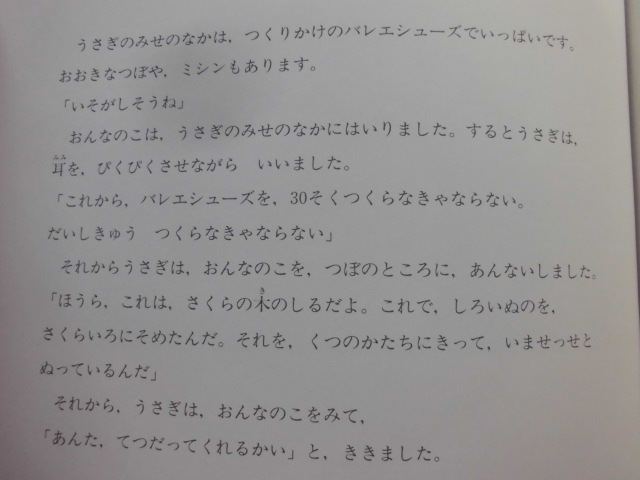 うさぎのみせのなかは，つくりかけのバレエシューズでいっぱいです。
おおきなつぼや，ミシンもあります。
「いそがしそうね」
おんなのこは，うさぎのみせのなかにはいりました。するとうさぎは，
耳を，ぴくぴくさせながら　いいました。
「これから，バレエシューズを，30そくつくらなきゃならない。
だいしきゅう　つくらなきゃならない」
それからうさぎは，おんなのこを，つぼのところに，あんないしました。
「ほうら，これは，さくらの木のしるだよ。これで，しろいぬのを，
さくらいろにそめたんだ。それを，くつのかたちにきって，いませっせと
ぬっているんだ」
それから，うさぎは，おんなのこをみて，
「あんた，てつだってくれるかい」と，ききました。